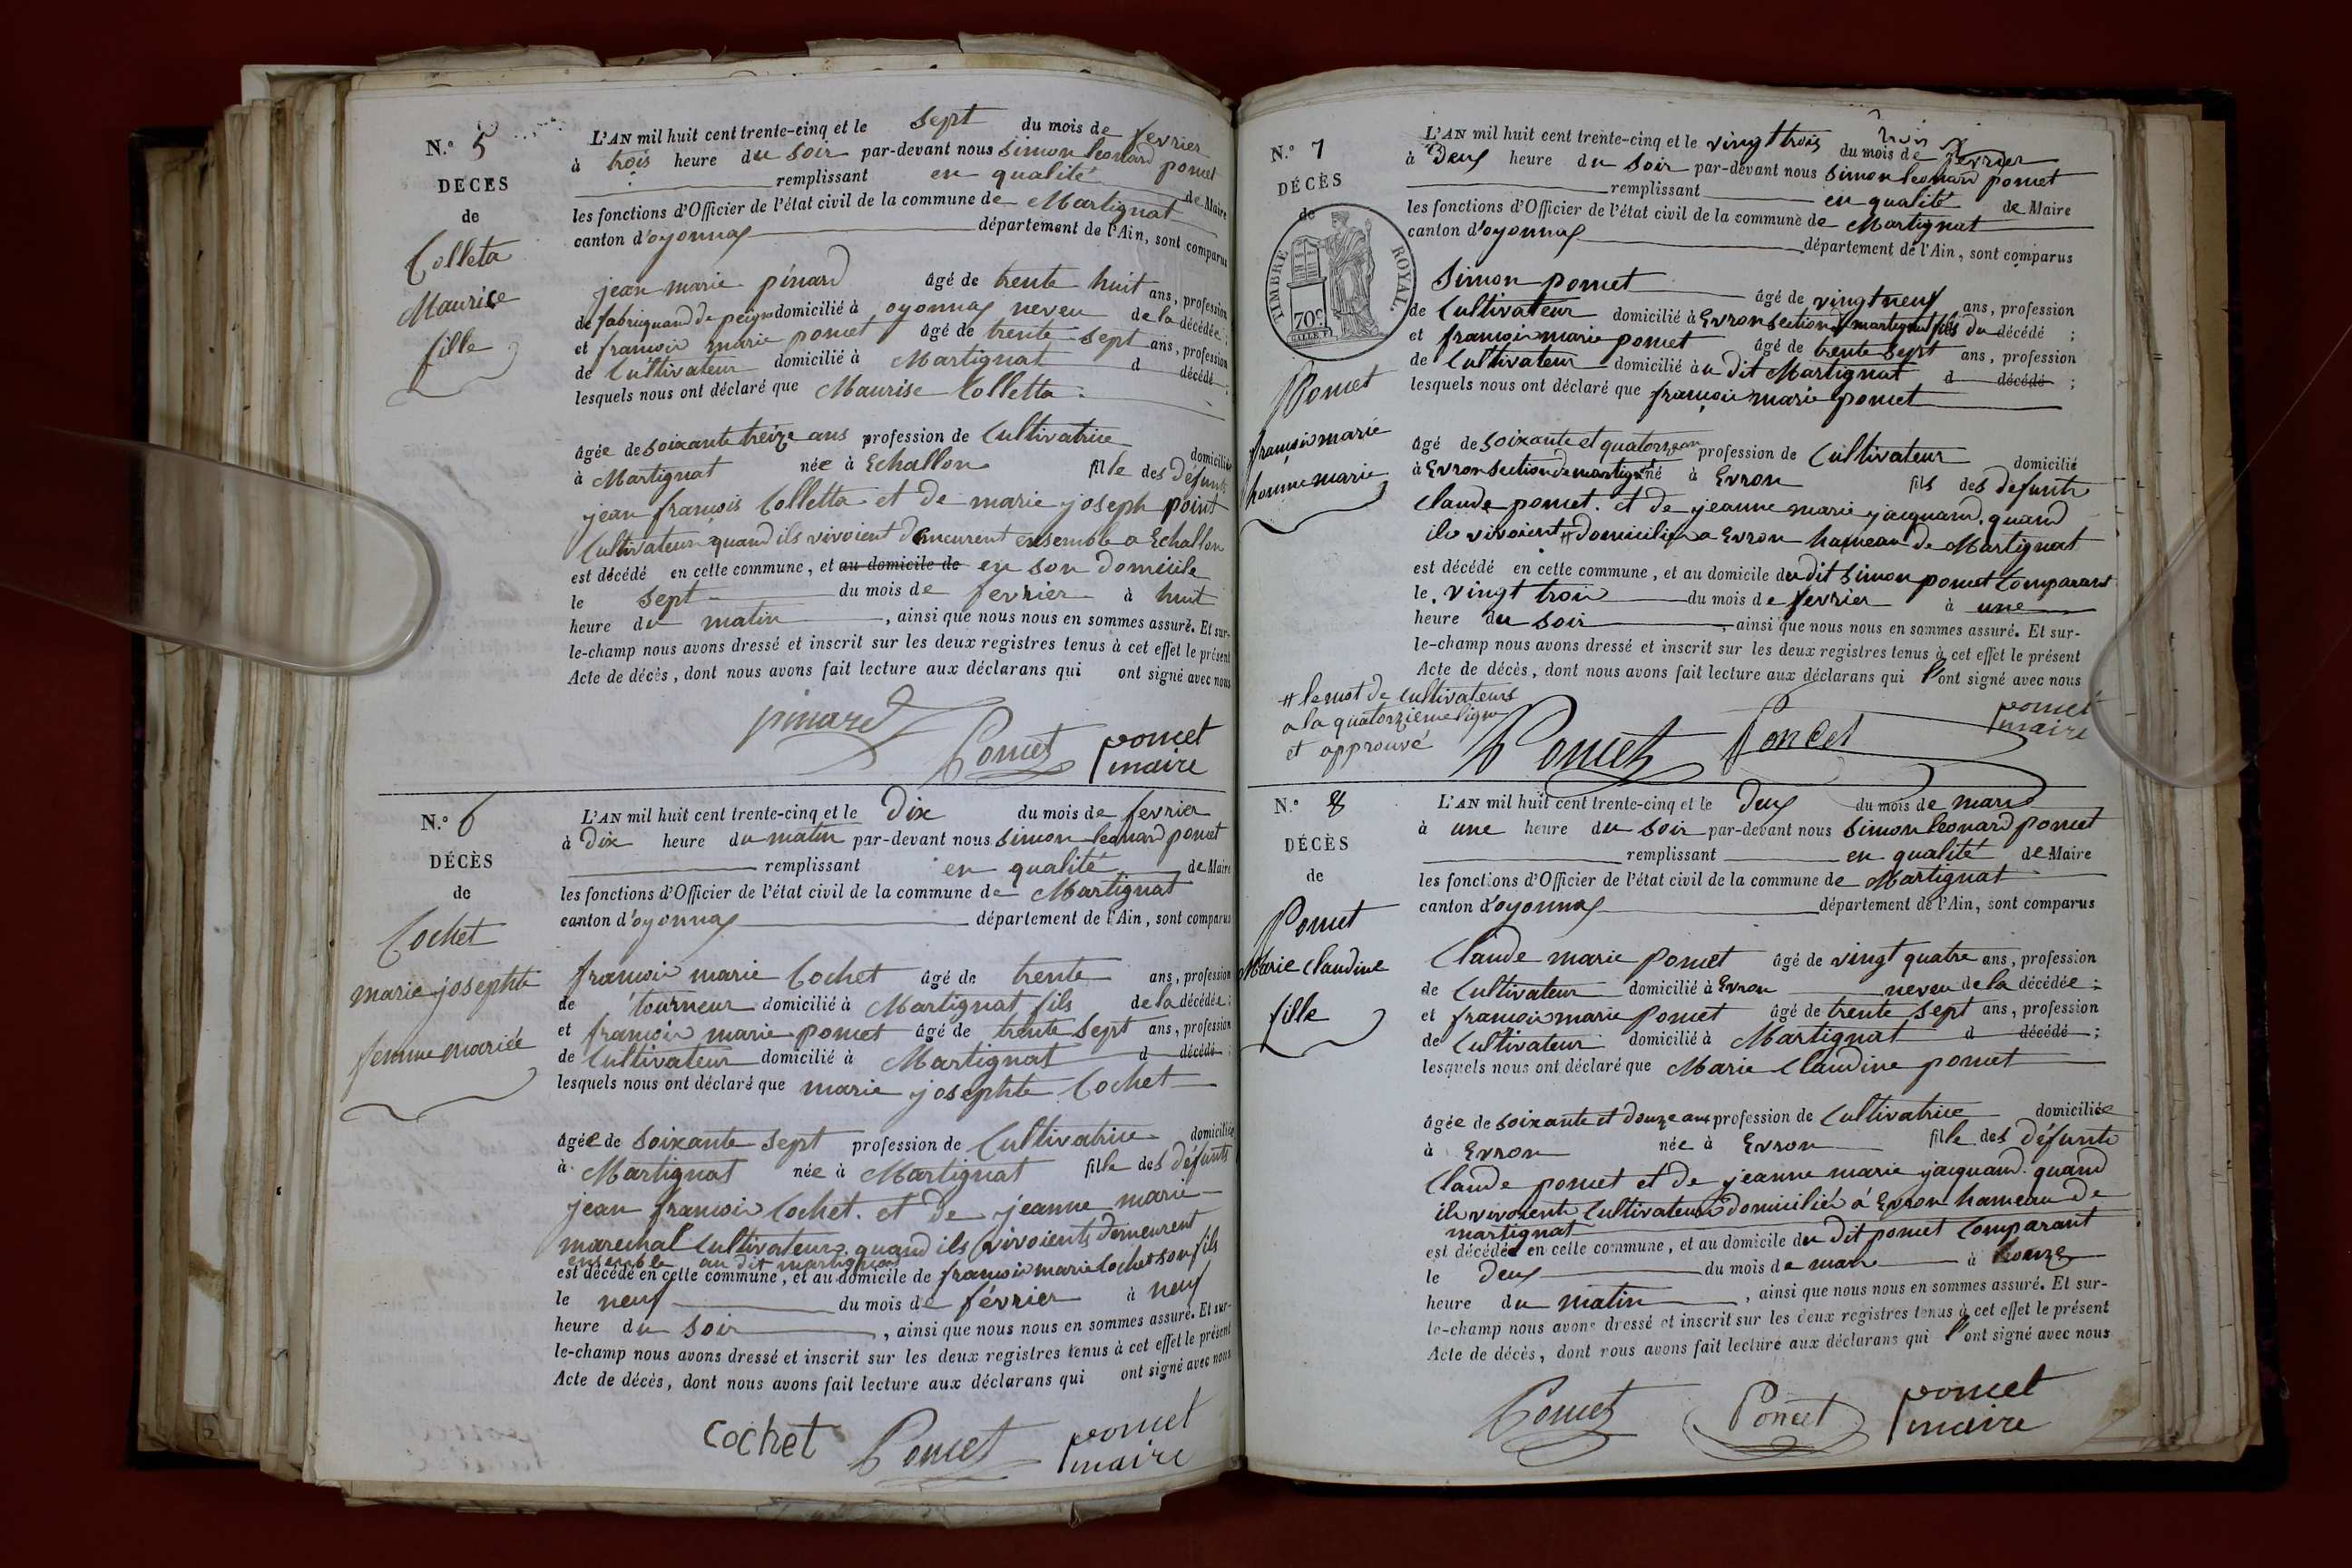 N.° 5
DECES
de
Colleta
Maurice
fille
L'AN mil huit cent trente-cinq et le sept du mois de fevrier
à trois heure du soir par-devant nous simon leonard poncet
remplissant en qualité de Maire
les fonctions d'Officier de l'état civil de la commune de Martignat
canton d'oyonnax département de l'Ain, sont comparus
jean marie pinard âgé de trente huit ans, profession
de fabriquand de peigne domicilié à oyonnax neveu de la décédée ;
et francois marie poncet âgé de trente-sept ans, profession
de Cultivateur domicilié à Martignat d décédé ;
lesquels nous ont déclaré que Maurise Colletta
âgée de soixante treize ans profession de Cultivatrice domiciliée
à Martignat née à Echallon fille des défunts
jean françois Colletta et de marie joseph point
Cultivateurs quand ils vivoient demeurent ensemble a Echallon
est décédé en cette commune, et au domicile de en son domicile
le sept du mois de fevrier à huit
heure du matin, ainsi que nous nous en sommes assuré. Et sur-
le-champ nous avons dressé et inscrit sur les deux registres tenus à cet effet le présent
Acte de décès, dont nous avons fait lecture aux déclarans qui ont signé avec nous
pinard
Poncet
poncet
maire
N.° 6
DÉCÈS
de
Cochet
marie josephte
femme mariée
L'AN mil huit cent trente-cinq et le Dix du mois de fevrier
à Dix heure du matin par-devant nous simon leonard poncet
remplissant en qualité de Maire
les fonctions d'Officier de l'état civil de la commune de Martignat
canton d'oyonnax département de l'Ain, sont comparus
francois marie Cochet âgé de trente ans, profession
de tourneur domicilié à Martignat fils de la décédée ;
et francois marie poncet âgé de trente sept ans, profession
de Cultivateur domicilié à Martignat d décédé ;
lesquels nous ont déclaré que marie josephte Cochet
âgée de soixante sept profession de Cultivatrice domiciliée
à Martignat née à Martignat fille des défunts
jean francois Cochet. et de jeanne marie
marechal Cultivateurs. quand ils vivoients demeurent
ensemble au dit martignat
est décédé en cette commune, et au domicile de francois marie Cochet son fils
le neuf du mois de février à neuf
heure du soir, ainsi que nous nous en sommes assuré. Et sur-
le-champ nous avons dressé et inscrit sur les deux registres tenus à cet effet le présent
Acte de décès, dont nous avons fait lecture aux déclarans qui ont signé avec nous
cochet
Poncet
poncet
maire
N.° 7
DÉCÈS
de
TIMBRE ROYAL.
70c
Poncet
françois marie
homme marie
trois
L'AN mil huit cent trente-cinq et le vingt trois du mois de fevrier
à Deux heure du soir par-devant nous simon leonard poncet
remplissant en qualité de Maire
les fonctions d'Officier de l'état civil de la commune de Martignat
canton d'oyonnax département de l'Ain, sont comparus
Simon poncet âgé de vingt neuf ans, profession
de Cultivateur domicilié à Evron section de martignat fils du décédé ;
et francois marie poncet âgé de trente sept ans, profession
de Cultivateur domicilié à u dit Martignat d décédé ;
lesquels nous ont déclaré que françois marie poncet
âgé de soixante et quatorze ans profession de Cultivateur domicilié
à Evron section de martignat né à Evron fils des defunts
Claude poncet. et de jeanne marie jacquand. quand
ils vivoient # domiciliés a Evron hameau de Martignat
est décédé en cette commune, et au domicile du dit simon poncet Comparant
le vingt trois du mois de fevrier à une
heure du soir, ainsi que nous nous en sommes assuré. Et sur-
le-champ nous avons dressé et inscrit sur les deux registres tenus à cet effet le présent
Acte de décès, dont nous avons fait lecture aux déclarans qui l'ont signé avec nous
# le mot de cultivateurs
a la quatorzieme ligne
et approuvé
Poncet
Poncet
poncet
maire
N.° 8
DÉCÈS
de
Poncet
Marie Claudine
fille
L'AN mil huit cent trente-cinq et le Deux du mois de mars
à une heure du soir par-devant nous simon leonard poncet
remplissant en qualité de Maire
les fonctions d'Officier de l'état civil de la commune de Martignat
canton d'oyonnax département de l'Ain, sont comparus
Claude marie Poncet âgé de vingt quatre ans, profession
de Cultivateur domicilié à Evron neveu de la décédée ;
et francois marie Poncet âgé de trente sept ans, profession
de Cultivateur domicilié à Martignat d décédé ;
lesquels nous ont déclaré que Marie Claudine poncet
âgée de soixante et douze ans profession de Cultivatrice domiciliée
à Evron née à Evron fille des défunts
Claude poncet et de jeanne marie jacquand. quand
ils vivoients Cultivateurs domiciliés à Evron hameau de
martignat
est décédée en cette commune, et au domicile du dit poncet Comparant
le Deux du mois de mars à honze
heure du matin, ainsi que nous nous en sommes assuré. Et sur-
le-champ nous avons dressé et inscrit sur les deux registres tenus à cet effet le présent
Acte de décès, dont nous avons fait lecture aux déclarans qui l'ont signé avec nous
Poncet
Poncet
poncet
maire